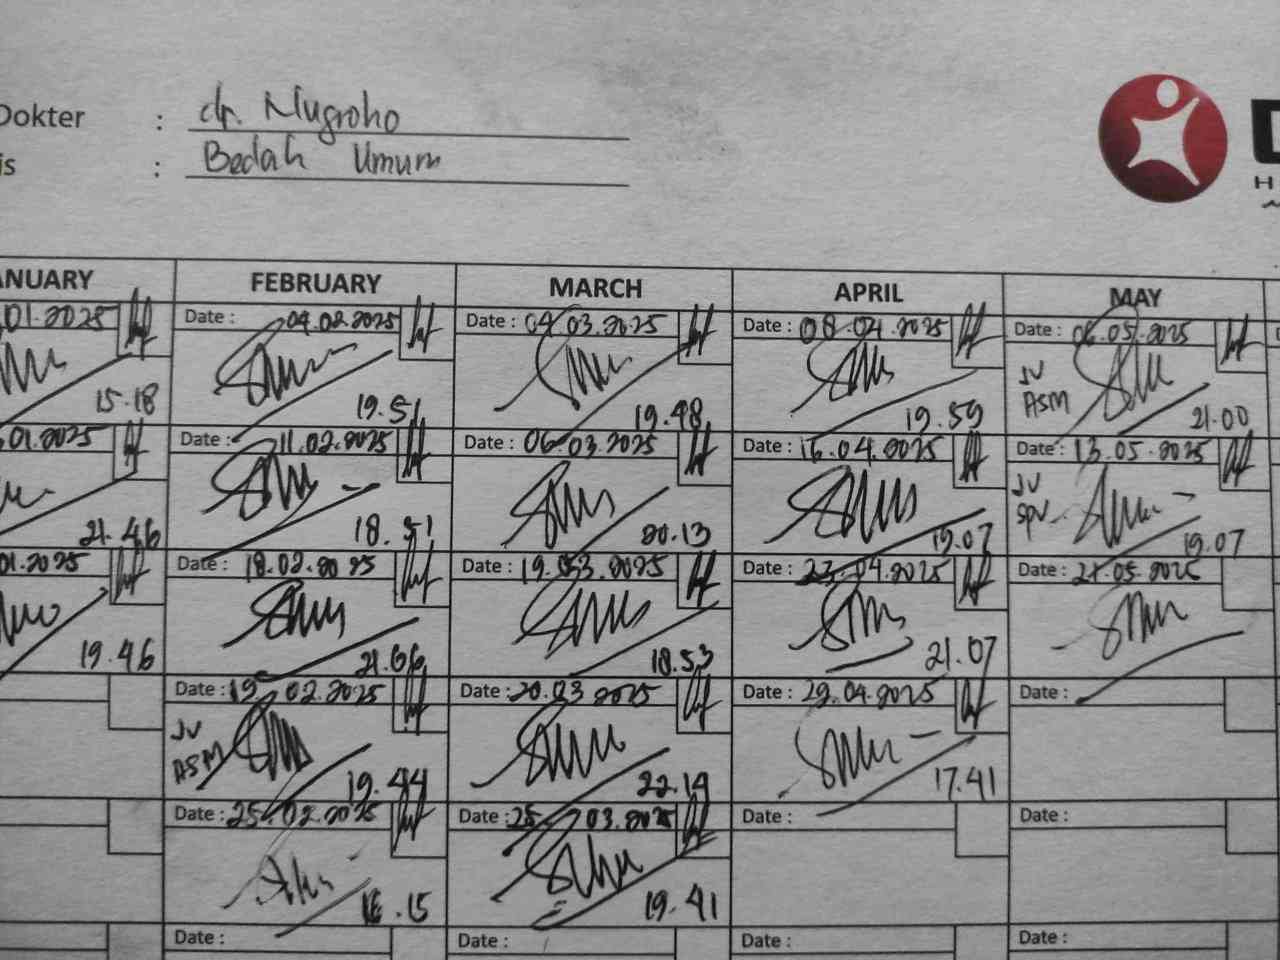 Dokter : dr. Nugroho
is : Bedah Umum
D
H
ANUARY FEBRUARY MARCH APRIL MAY
01.2025 Date : 04.02.2025 Date : 04.03.2025 Date : 08.04.2025 Date : 06.05.2025
JV
ASM
15.18 19.51 19.48 19.59 21.00
01.2025 Date : 11.02.2025 Date : 06.03.2025 Date : 16.04.2025 Date : 13.05.2025
JV
SPV
21.46 18.51 20.13 19.07 19.07
01.2025 Date : 18.02.2025 Date : 19.03.2025 Date : 23.04.2025 Date : 21.05.2025
19.46 21.06 18.53 21.07
Date : 19.02.2025 Date : 20.03 2025 Date : 29.04.2025 Date :
JV
ASM
19.44 22.14 17.41
Date : 25.02.2025 Date : 25 03.2025 Date : Date :
16.15 19.41
Date : Date : Date : Date :